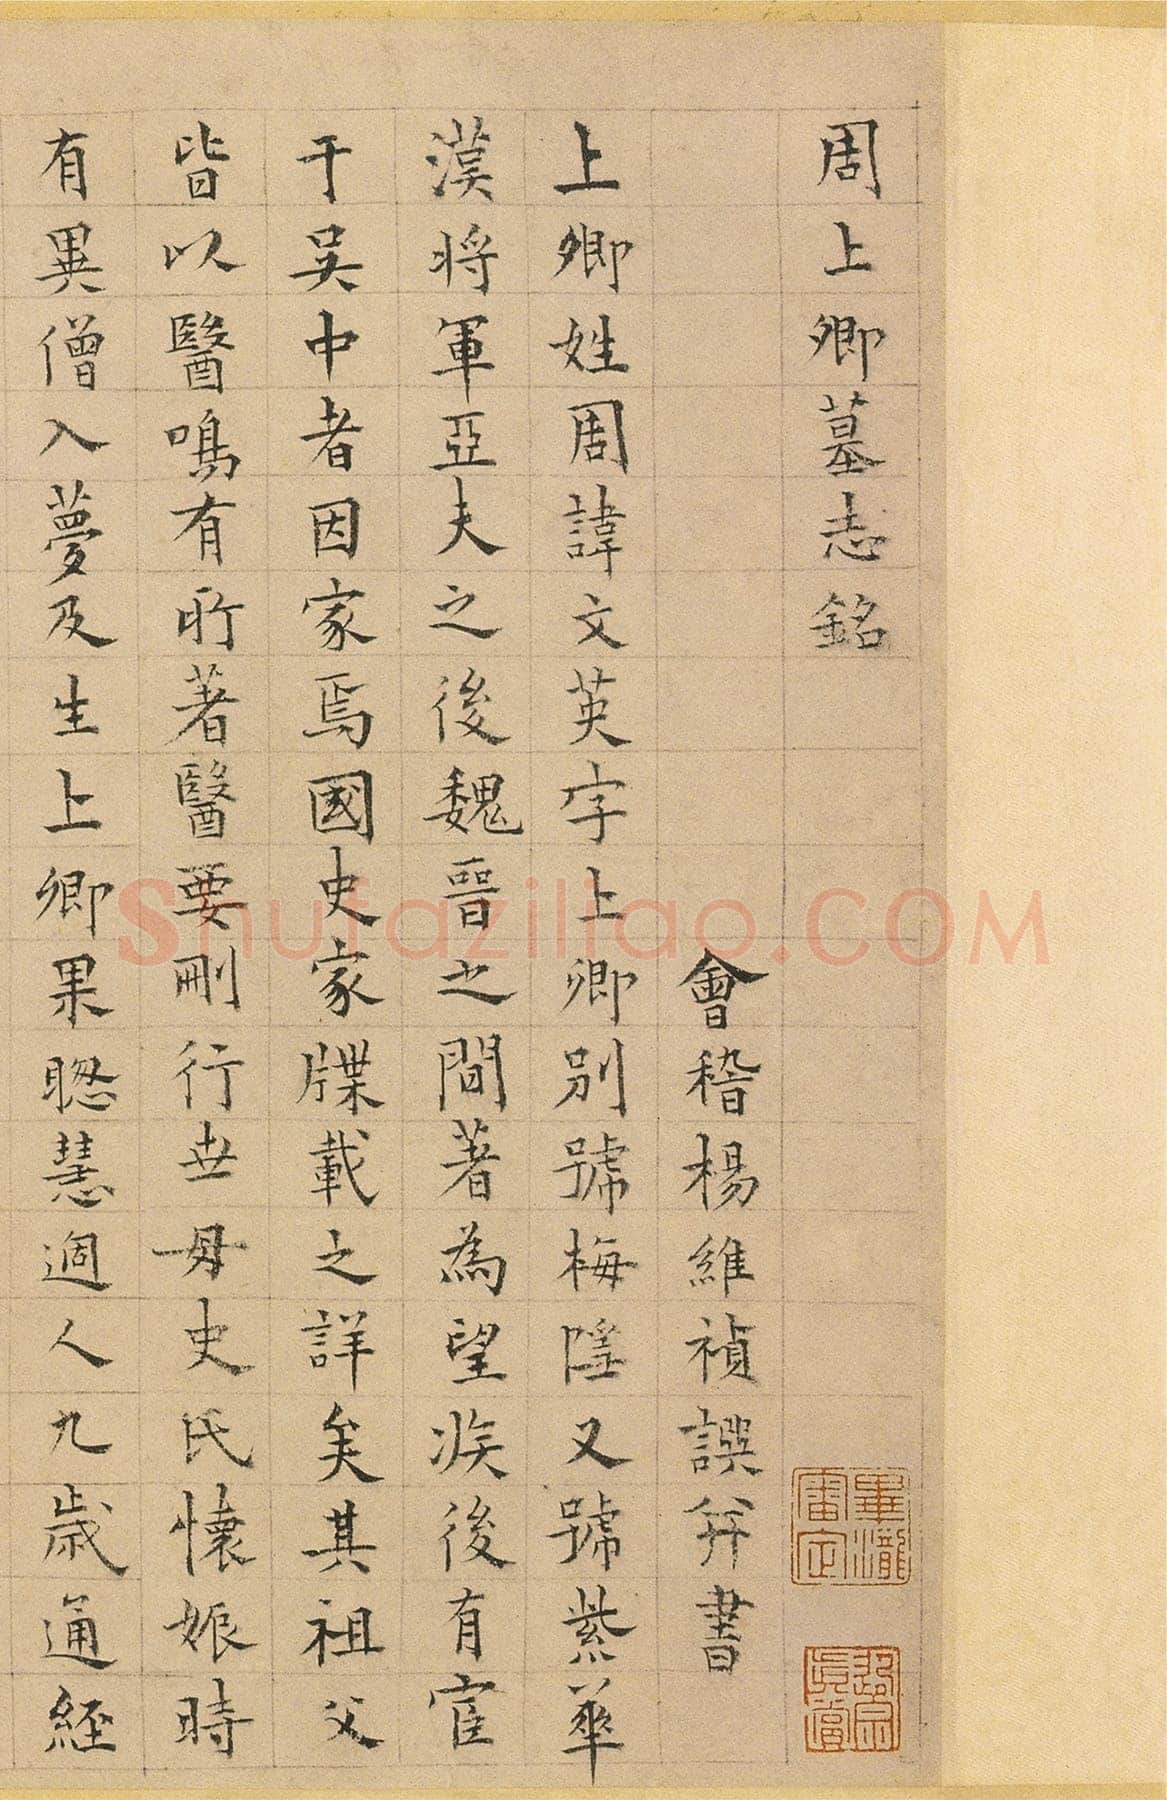 周上卿墓志銘
會稽楊維禎譔并書
上卿姓周諱文英字上卿別號梅隱又號紫華
漢將軍亞夫之後魏晉之間著為望族後有宦
于吳中者因家焉國史家牒載之詳矣其祖父
皆以醫鳴有所著醫要刪行世母史氏懷娠時
有異僧入夢及生上卿果聰慧過人九歲通經
Shufaziliao.COM
畢瀧審定